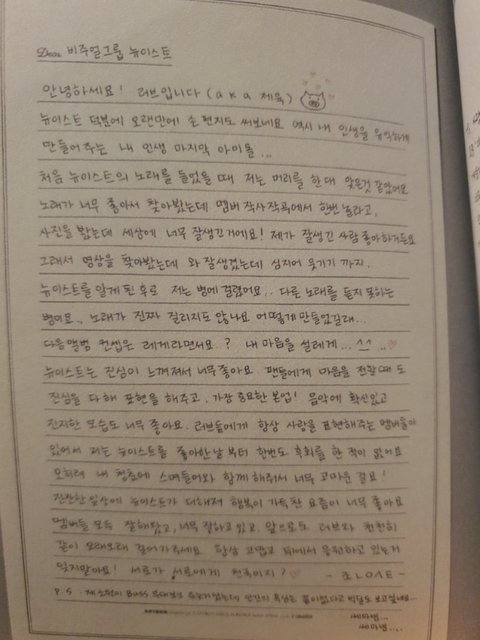 Dear 비주얼그룹 뉴이스트
안녕하세요! 러브입니다 (a k a 제육)
뉴이스트 덕분에 오랜만에 손 편지도 써보네요. 역시 내 인생을 유익하게
만들어주는 내 인생 마지막 아이돌...
처음 뉴이스트의 노래를 들었을 때 저는 머리를 한대 맞은것 같았어요
노래가 너무 좋아서 찾아봤는데 멤버 작사작곡에서 한번 놀라고,
사진을 봤는데 세상에 너무 잘생긴거에요! 제가 잘생긴 사람 좋아하거든요
그래서 영상을 찾아봤는데 와 잘생겼는데 심지어 웃기기 까지.
뉴이스트를 알게 된 후로 저는 병에 걸렸어요.. 다른 노래를 듣지 못하는
병이요.. 노래가 진짜 질리지도 않나요 어떻게 만들었길래...
다음앨범 컨셉은 레게라면서요..? 내 마음을 설레게... ^^ ...
뉴이스트는 진심이 느껴져서 너무 좋아요. 팬들에게 마음을 전할 때도
진심을 다해 표현을 해주고, 가장 중요한 본업! 음악에 확신있고
진지한 모습도 너무 좋아요. 러브들에게 항상 사랑을 표현해주는 멤버들이
있어서 저는 뉴이스트를 좋아한 날 부터 한번도 후회를 한 적이 없어요
오히려 내 청춘에 스며들어와 함께 해줘서 너무 고마운 걸요!
잔잔한 일상에 뉴이스트가 더해져 행복이 가득찬 요즘이 너무 좋아요
멤버들 모두 잘해왔고, 너무 잘하고 있고, 앞으로도 러브와 천천히
같이 오래오래 걸어가주세요. 항상 그렇고 뒤에서 응원하고 있는거
잊지말아요! 서로가 서로에게 천국이지?
- 죠 LOVE -
P.S. 제 소원이 Boss 무대보는